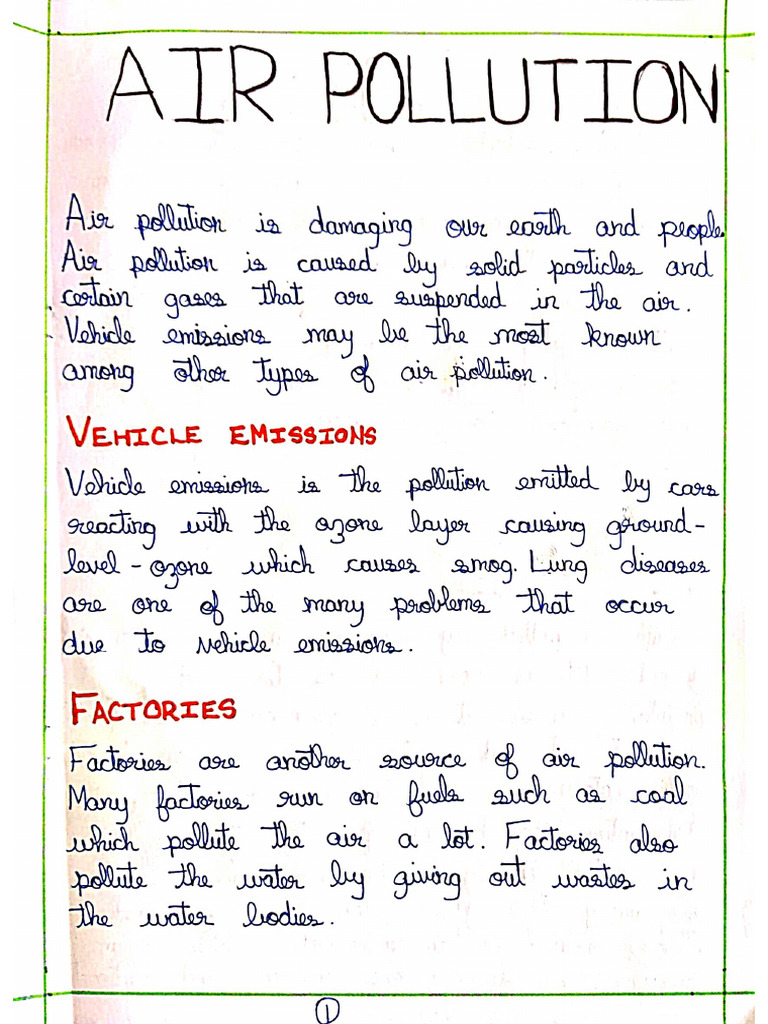 AIR POLLUTION
Air pollution is damaging our earth and people.
Air pollution is caused by solid particles and
certain gases that are suspended in the air.
Vehicle emissions may be the most known
among other types of air pollution.
VEHICLE EMISSIONS
Vehicle emissions is the pollution emitted by cars
reacting with the ozone layer causing ground-
level-ozone which causes smog. Lung diseases
are one of the many problems that occur
due to vehicle emissions.
FACTORIES
Factories are another source of air pollution.
Many factories run on fuels such as coal
which pollute the air a lot. Factories also
pollute the water by giving out wastes in
the water bodies.
1